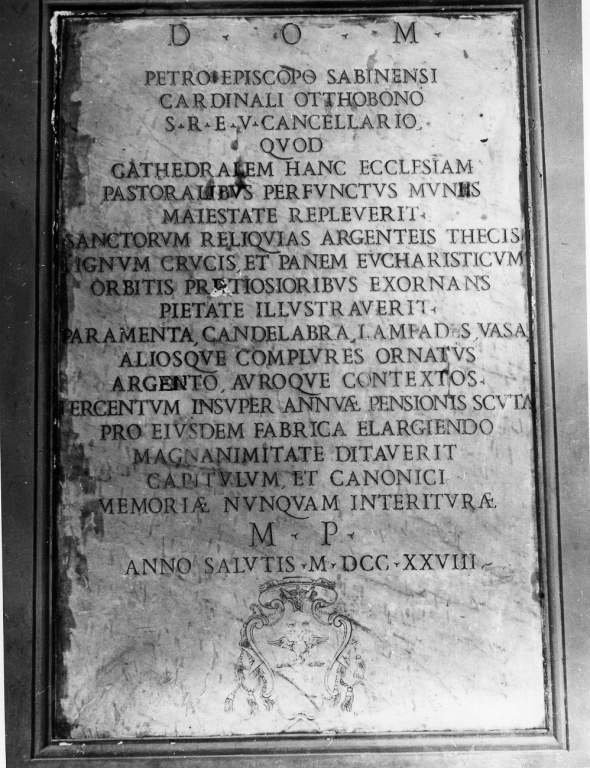 D · O · M ·
PETRO EPISCOPO SABINENSI
CARDINALI OTTHOBONO
S · R · E · V · CANCELLARIO
QVOD
CATHEDRALEM HANC ECCLESIAM
PASTORALIBVS PERFVNCTVS MVNIIS
MAIESTATE REPLEVERIT ·
SANCTORVM RELIQVIAS ARGENTEIS THECIS
LIGNVM CRVCIS, ET PANEM EVCHARISTICVM
ORBITIS PRETIOSIORIBVS EXORNANS
PIETATE ILLVSTRAVERIT ·
PARAMENTA, CANDELABRA, LAMPADES, VASA
ALIOSQVE COMPLVRES ORNATVS
ARGENTO, AVROQVE CONTEXTOS ·
TERCENTVM INSVPER ANNVÆ PENSIONIS SCVTA
PRO EIVSDEM FABRICA ELARGIENDO
MAGNANIMITATE DITAVERIT
CAPITVLVM, ET CANONICI
MEMORIÆ NVNQVAM INTERITVRÆ
M · P ·
ANNO SALVTIS · M · DCC · XXVIII ·